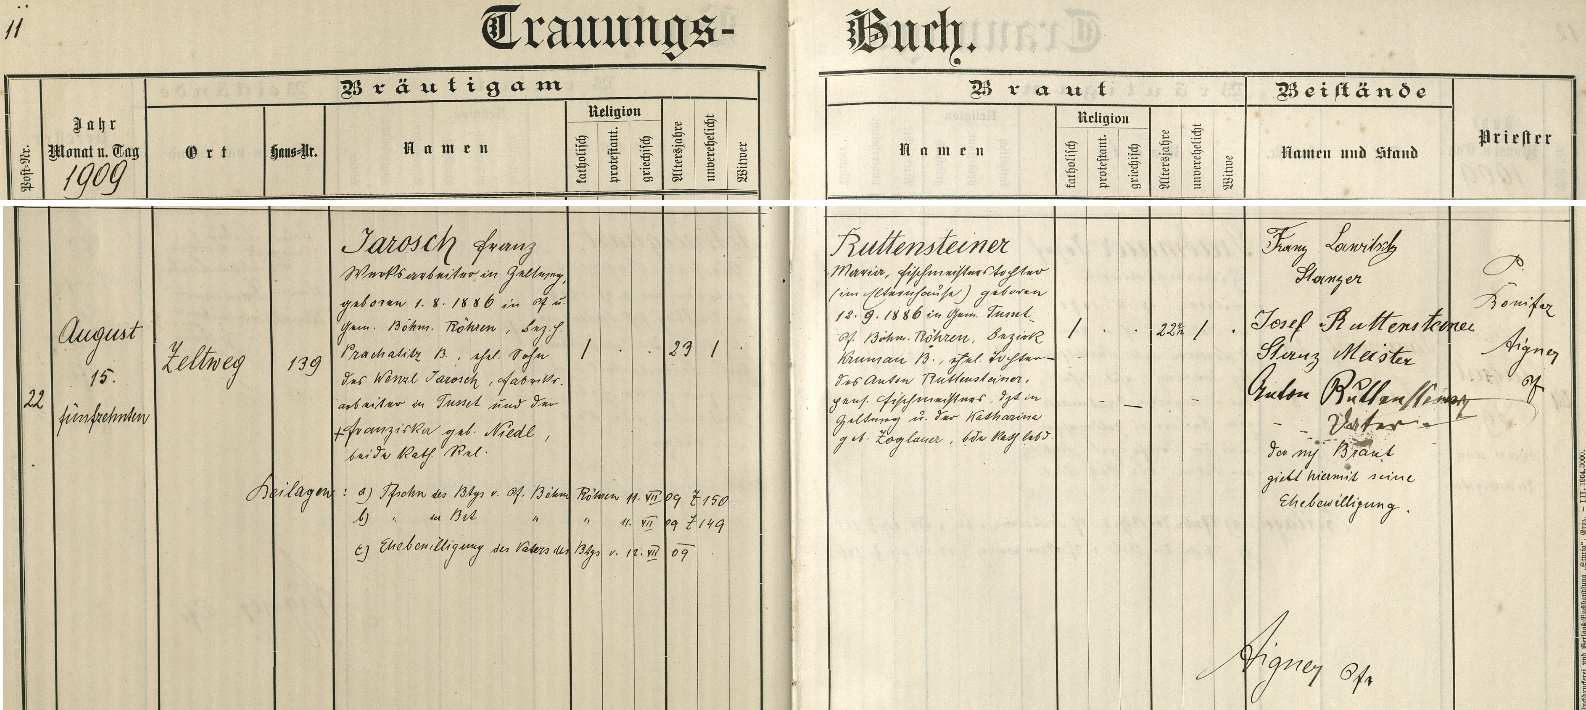 11
Trauungs-
Buch.
Post-Nr.
Jahr
Monat n. Tag
1909
Bräutigam
Ort
Haus-Nr.
Namen
Religion
katholisch
protestant.
griechisch
Altersjahre
unverehelicht
Witwer
Braut
Namen
Religion
katholisch
protestant.
griechisch
Altersjahre
unverehelicht
Witwe
Beistände
Namen und Stand
Priester
22
August
15.
fünfzehnten
Zeltweg
139
Jarosch Franz
Werksarbeiter in Zeltweg,
geboren 1. 8. 1886 in Pf u.
Gem. Böhm. Röhren, Bez.h.
Prachatitz B., ehel. Sohn
des Wenzl Jarosch, Fabriks-
arbeiter in Tusset und der
+ Franziska geb. Niedl,
beide kath. Rel.
1
23
1
Beilagen: a) Tfschn des Btgs v. Pf. Böhm Röhren 11. VII 09 Z 150
b) " der Brt " " 11. VII 09 Z 149
c) Ehebewilligung des Vaters des Btgs v. 12. VII 09
Ruttensteiner
Maria, Fischmeisterstochter
(im Elternhause) geboren
12. 9. 1886 in Gem. Tusset
Pf. Böhm. Röhren, Bezirk
Krumau B., ehel. Tochter
des Anton Ruttensteiner,
gew. Fischmeisters, dzt in
Zeltweg u. der Katharina
geb. Zoglauer, bde kath
1
22½
1
Franz Lawitsch
Stanzer
Josef Ruttensteiner
Stanz Meister
Anton Ruttensteiner
Vater
der mj Braut
giebt hiermit seine
Ehebewilligung.
P.
Bonifaz
Aigner
Pf
Aigner Pfr